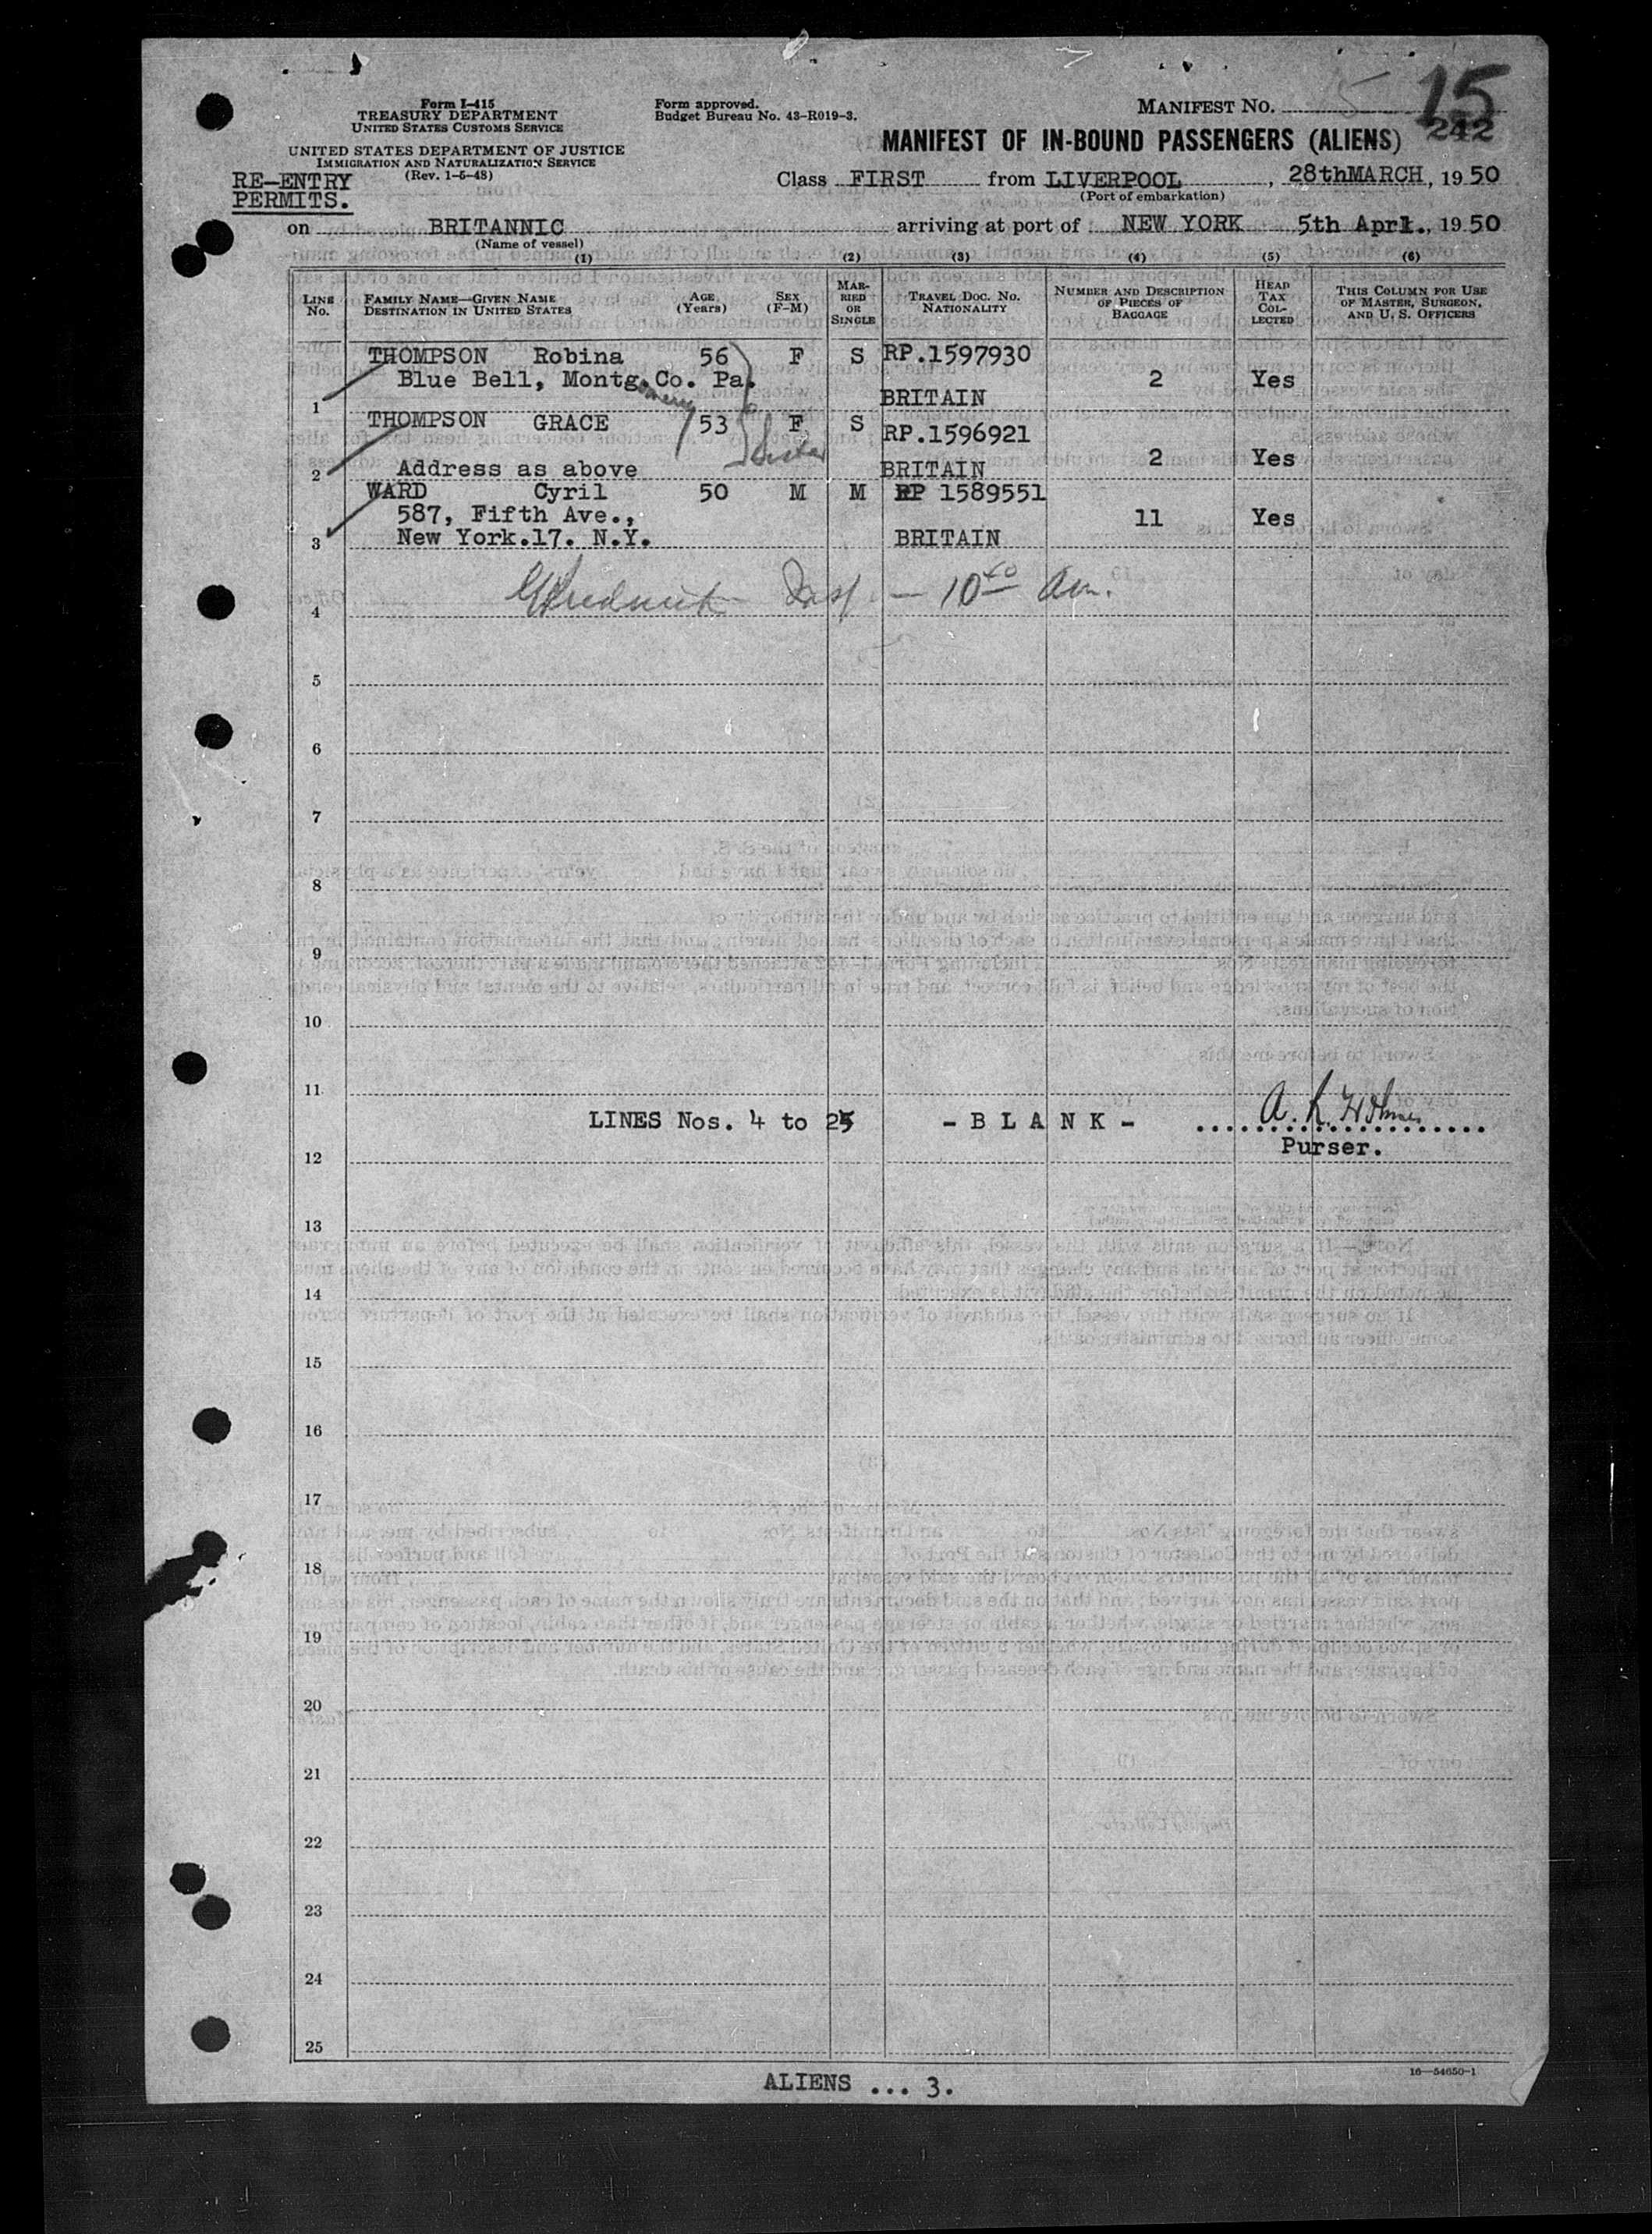 Form I-415
TREASURY DEPARTMENT
UNITED STATES CUSTOMS SERVICE
UNITED STATES DEPARTMENT OF JUSTICE
IMMIGRATION AND NATURALIZATION SERVICE
(Rev. 1-5-48)
RE-ENTRY
PERMITS.
Form approved.
Budget Bureau No. 43-R019-3.
MANIFEST No. 15
242
MANIFEST OF IN-BOUND PASSENGERS (ALIENS)
Class FIRST from LIVERPOOL, 28thMARCH, 1950
(Port of embarkation)
on BRITANNIC arriving at port of NEW YORK 5th Aprl., 1950
(Name of vessel)
(1) (2) (3) (4) (5) (6)
LINE No. FAMILY NAME—GIVEN NAME DESTINATION IN UNITED STATES AGE (Years) SEX (F-M) MARRIED OR SINGLE TRAVEL DOC. NO. NATIONALITY NUMBER AND DESCRIPTION OF PIECES OF BAGGAGE HEAD TAX COLLECTED THIS COLUMN FOR USE OF MASTER, SURGEON, AND U. S. OFFICERS
THOMPSON Robina 56 F S RP.1597930
Blue Bell, Montg.Co. Pa. 2 Yes
omery
1 BRITAIN
THOMPSON GRACE 53 F S RP.1596921
Sister
2 Address as above BRITAIN 2 Yes
WARD Cyril 50 M M RP 1589551
587, Fifth Ave., 11 Yes
3 New York.17. N.Y. BRITAIN
Insp — 10 40 Am.
4
5
6
7
8
9
10
11
LINES Nos. 4 to 25 - B L A N K -
Purser.
12
13
14
15
16
17
18
19
20
21
22
23
24
25
16—54650-1
ALIENS ... 3.